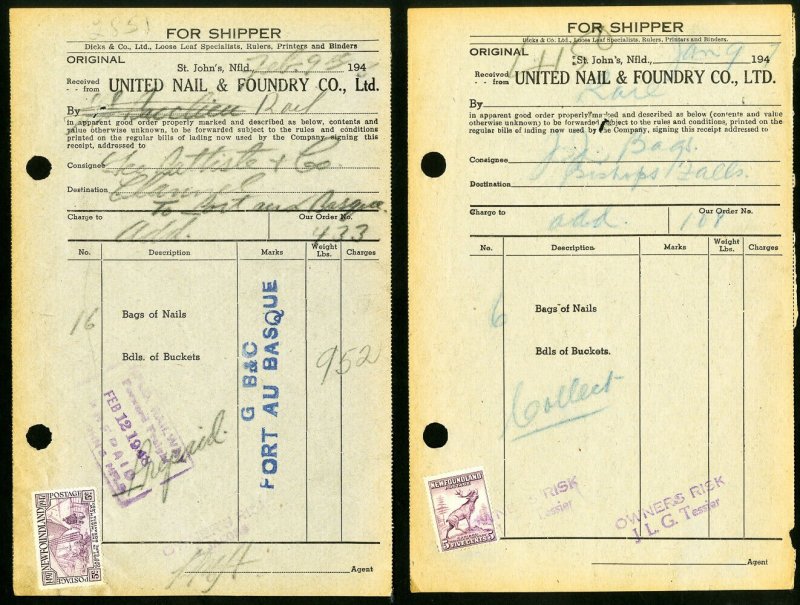 2851
FOR SHIPPER
Dicks & Co., Ltd., Loose Leaf Specialists, Rulers, Printers and Binders
ORIGINAL
St. John's, Nfld. Feb. 9 194
Received from UNITED NAIL & FOUNDRY CO., Ltd.
By Rail
in apparent good order properly marked and described as below, contents and
value otherwise unknown, to be forwarded subject to the rules and conditions
printed on the regular bills of lading now used by the Company, signing this
receipt, addressed to
Consignee Geo Battiste & Co.
Destination Channel
To Port aux Basque
Charge to add. Our Order No. 433
No. Description Marks Weight Lbs. Charges
16 Bags of Nails
Bdls. of Buckets
952
G B&C
PORT AU BASQUE
FEB 12 194
Prepaid.
OWNERS RISK
Agent
POSTAGE
NEWFOUNDLAND
POSTAGE
FOR SHIPPER
Dicks & Co. Ltd., Loose Leaf Specialists, Rulers, Printers and Binders.
ORIGINAL
St. John's, Nfld., Jan 9 194 7
Received from UNITED NAIL & FOUNDRY CO., LTD.
Rail
By
in apparent good order properly marked and described as below (contents and value
otherwise unknown) to be forwarded subject to the rules and conditions, printed on the
regular bills of lading now used by the Company, signing this receipt addressed to
Consignee
Destination Bishops Falls.
Charge to add. Our Order No.
No. Description Marks Weight Lbs. Charges
6 Bags of Nails
Bdls of Buckets.
Collect
OWNERS RISK
J.L.G. Tessier
Agent
NEWFOUNDLAND
POSTAGE
FIVE CENTS